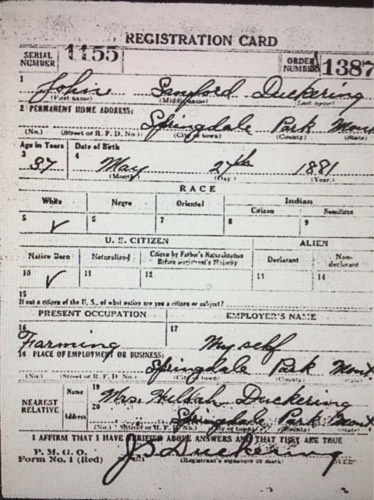 REGISTRATION CARD
SERIAL NUMBER 1155 ORDER NUMBER 1387
1 John Sanford Duckering
(First name) (Middle name) (Last name)
2 PERMANENT HOME ADDRESS:
Springdale Park Mont
(No.) (Street or R. F. D. No.) (City or town) (County) (State)
Age in Years Date of Birth
3 4
37 May 27th 1881
(Month) (Day) (Year)
RACE
White Negro Oriental Indian
Citizen Noncitizen
5 ✓ 6 7 8 9
U. S. CITIZEN ALIEN
Native Born Naturalized Citizen by Father's Naturalization Before Registrant's Majority Declarant Non-declarant
10 ✓ 11 12 13 14
15
If not a citizen of the U. S., of what nation are you a citizen or subject?
PRESENT OCCUPATION EMPLOYER'S NAME
16 17
Farming My self
18 PLACE OF EMPLOYMENT OR BUSINESS:
Springdale Park Mont
(No.) (Street or R. F. D. No.) (City or town) (County) (State)
NEAREST RELATIVE Name 19 Mrs. Huldah Duckering
Address 20 Springdale Park Mont
(No.) (Street or R. F. D. No.) (City or town) (County) (State)
I AFFIRM THAT I HAVE VERIFIED ABOVE ANSWERS AND THAT THEY ARE TRUE
P. M. G. O.
Form No. 1 (Red) J S Duckering
(Registrant's signature or mark)